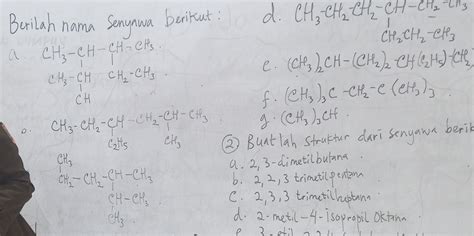 Berilah nama senyawa berikut:
a. CH3-CH-CH-CH3
CH3-CH CH2-CH3
CH
CH3-CH2-CH-CH2-CH-CH3
C2H5 CH3
CH3
CH2-CH2-CH-CH3
CH-CH3
CH3
d. CH3-CH2-CH2-CH-CH2-CH3
CH2CH2-CH3
e. (CH3)2CH-(CH2)2-CH(C2H5)-CH2
f. (CH3)3C-CH2-C(CH3)3
g. (CH3)3CH
② Buatlah struktur dari senyawa berik
a. 2,3-dimetilbutana
b. 2,2,3 trimetilpentana
c. 2,3,3 trimetilheptana
d. 2-metil-4-Isopropil Oktana